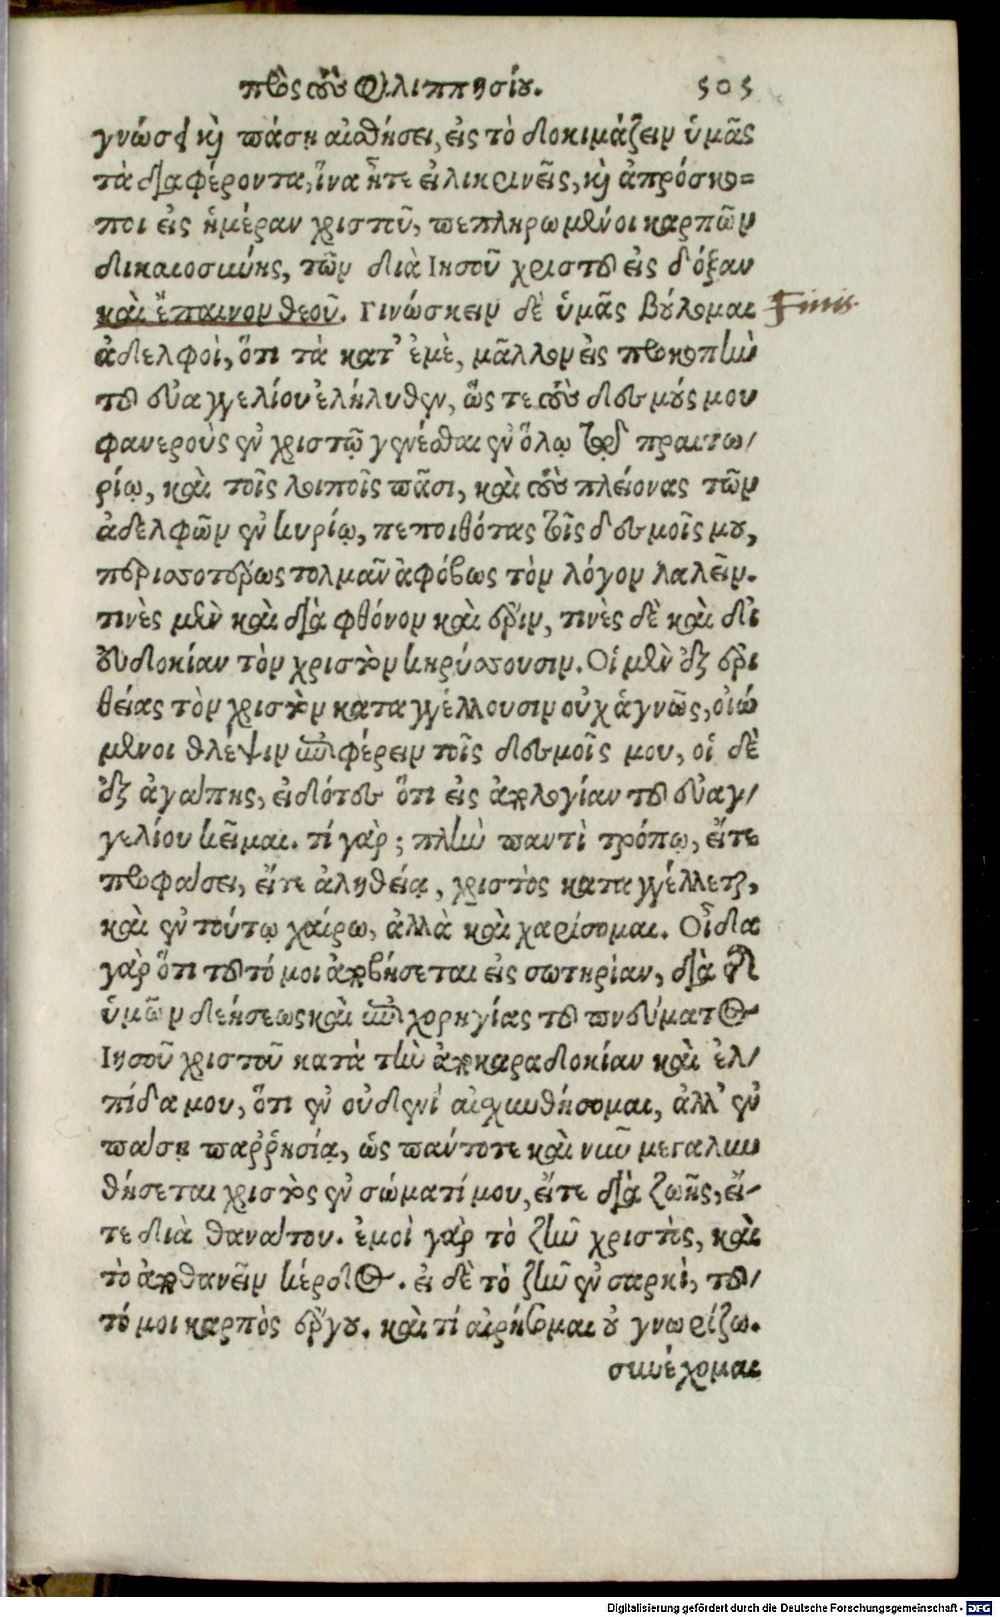 πρὸς τοὺς Φιλιππησίου. 505
γνώσει καὶ πάσῃ αἰσθήσει, εἰς τὸ δοκιμάζειν ὑμᾶς
τὰ διαφέροντα, ἵνα ἦτε εἰλικρινεῖς, καὶ ἀπρόσκο=
ποι εἰς ἡμέραν χριστοῦ, πεπληρωμένοι καρπῶν
δικαιοσύνης, τῶν διὰ Ιησοῦ χριστοῦ εἰς δόξαν
καὶ ἔπαινον θεοῦ. Γινώσκειν δὲ ὑμᾶς βούλομαι Finis
ἀδελφοὶ, ὅτι τὰ κατ’ ἐμὲ, μᾶλλον εἰς προκοπὴν
τοῦ εὐαγγελίου ἐλήλυθεν, ὥς τε τοὺς δεσμούς μου
φανεροὺς ἐν χριστῷ γενέσθαι ἐν ὅλῳ τῷ πραιτω/
ρίῳ, καὶ τοῖς λοιποῖς πᾶσι, καὶ τοὺς πλείονας τῶν
ἀδελφῶν ἐν κυρίῳ, πεποιθότας τοῖς δεσμοῖς μου,
περισσοτέρως τολμᾶν ἀφόβως τὸν λόγον λαλεῖν.
τινὲς μὲν καὶ διὰ φθόνον καὶ ἔριν, τινὲς δὲ καὶ δι
εὐδοκίαν τὸν χριστὸν κηρύσσουσιν. Οἱ μὲν ἐξ ἐρι
θείας τὸν χριστὸν καταγγέλλουσιν οὐχ ἁγνῶς, οἰό
μενοι θλέψιν ἐπιφέρειν τοῖς δεσμοῖς μου, οἱ δὲ
ἐξ ἀγάπης, εἰδότες ὅτι εἰς ἀπολογίαν τοῦ εὐαγ/
γελίου κεῖμαι. τί γὰρ; πλὴν παντὶ τρόπῳ, εἴτε
προφάσει, εἴτε ἀληθείᾳ, χριστὸς καταγγέλλεται,
καὶ ἐν τούτῳ χαίρω, ἀλλὰ καὶ χαρίσομαι. Οἶδα
γὰρ ὅτι τοῦτό μοι ἀποβήσεται εἰς σωτηρίαν, διὰ τῆς
ὑμῶν δεήσεως καὶ ἐπιχορηγίας τοῦ πνεύματος
Ιησοῦ χριστοῦ κατὰ τὴν ἀποκαραδοκίαν καὶ ἐλ/
πίδα μου, ὅτι ἐν οὐδενὶ αἰσχυνθήσομαι, ἀλλ’ ἐν
πάσῃ παῤῥησίᾳ, ὡς πάντοτε καὶ νῦν μεγαλυν
θήσεται χριστὸς ἐν σώματί μου, εἴτε διὰ ζωῆς, εἴ-
τε διὰ θανάτου. ἐμοὶ γὰρ τὸ ζῆν χριστὸς, καὶ
τὸ ἀποθανεῖν κέρδος. εἰ δὲ τὸ ζῆν ἐν σαρκὶ, τοῦ/
τό μοι καρπὸς ἔργου. καὶ τί αἱρήσομαι οὐ γνωρίζω.
συνέχομαι
Digitalisierung gefördert durch die Deutsche Forschungsgemeinschaft - DFG